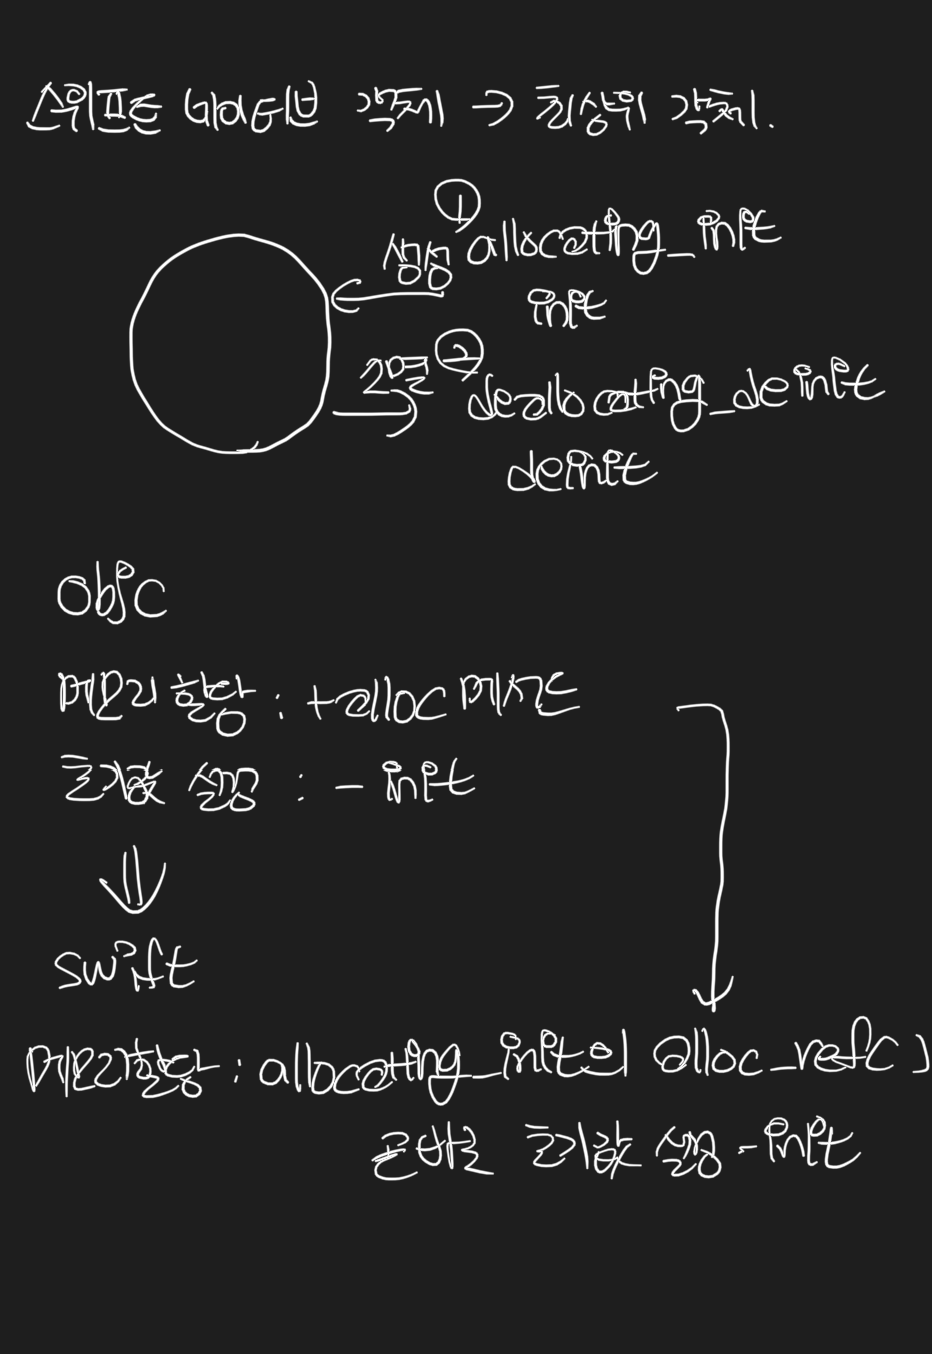 스위프트 네이티브 객체 → 최상위 객체.
① 생성 allocating_init
init
② 소멸 deallocating_deinit
deinit
objc
메모리 할당 : +alloc 메서드
초기값 설정 : - init
⇓
swift
메모리할당 : allocating_init의 alloc_ref()
곧바로 초기값 설정 - init